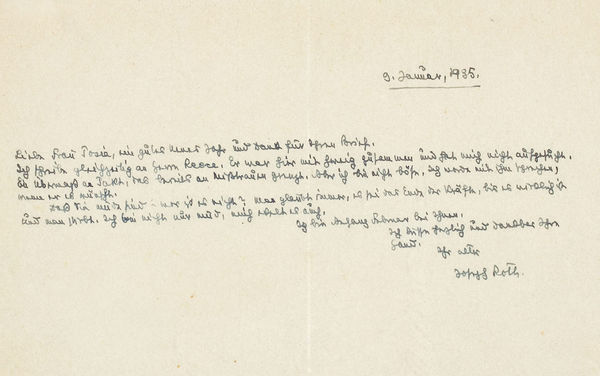 9. Januar, 1935.
Liebe Frau Tosia, ein gutes neues Jahr und Dank für Ihren Brief.
Ich schreibe gleichzeitig an Herrn Reece. Er war hier mit zusammen und hat mich nicht aufgesucht.
Ein Übermaß an Takt, das bereits an Mißtrauen grenzt. Aber ich bin nicht böse, ich werde mit ihm sprechen,
wenn er es wünscht.
Daß Sie müde sind: wer ist es nicht? Man glaubt immer, es sei das Ende der Kräfte, bis es wirklich ist
und man stirbt. Ich bin nicht nur müd, auch
Ich bin Anfang Februar bei Ihnen.
Ich küsse herzlich und dankbar Ihre
Hand.
Ihr alter
Joseph Roth.